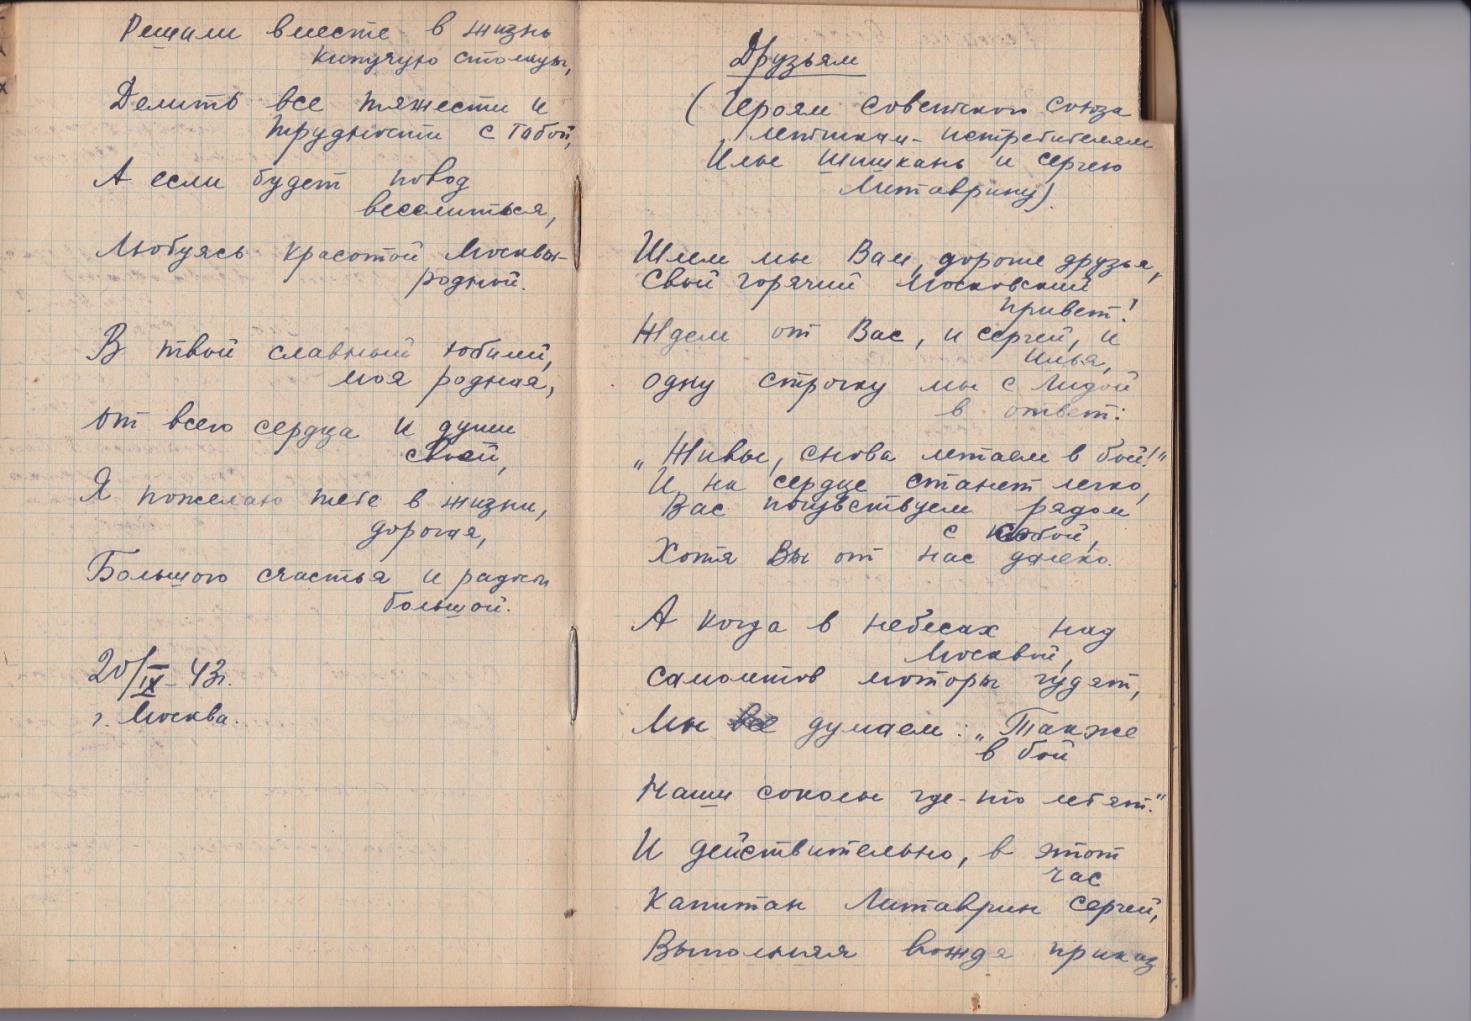 Решали вместе в жизнь
кипучую столицы,
Делить все тяжести и
трудности с тобой,
А если будет повод
веселиться,
Любуясь красотой Москвы-
родной.
В твой славный юбилей,
моя родная,
От всего сердца и души
своей,
Я пожелаю тебе в жизни,
дорогая,
Большого счастья и радости
большой.
20/IX-43г.
г. Москва.
Друзьям
(Героям Советского Союза
летчикам-истребителям
Илье Шишкань и Сергею
Литаврину).
Шлем мы Вам, дорогие друзья,
Свой горячий Московский
привет!
Ждем от Вас, и Сергей, и
Илья,
Одну строчку мы с Лидой
в ответ:
„Живы, снова летаем в бой!"
И на сердце станет легко,
Вас почувствуем рядом
с собой,
Хотя Вы от нас далеко.
А когда в небесах над
Москвой,
Самолетов моторы гудят,
Мы думаем: „Также
в бой
Наши соколы где-то летят."
И действительно, в этот
час
Капитан Литаврин Сергей,
Выполняя вождя приказ